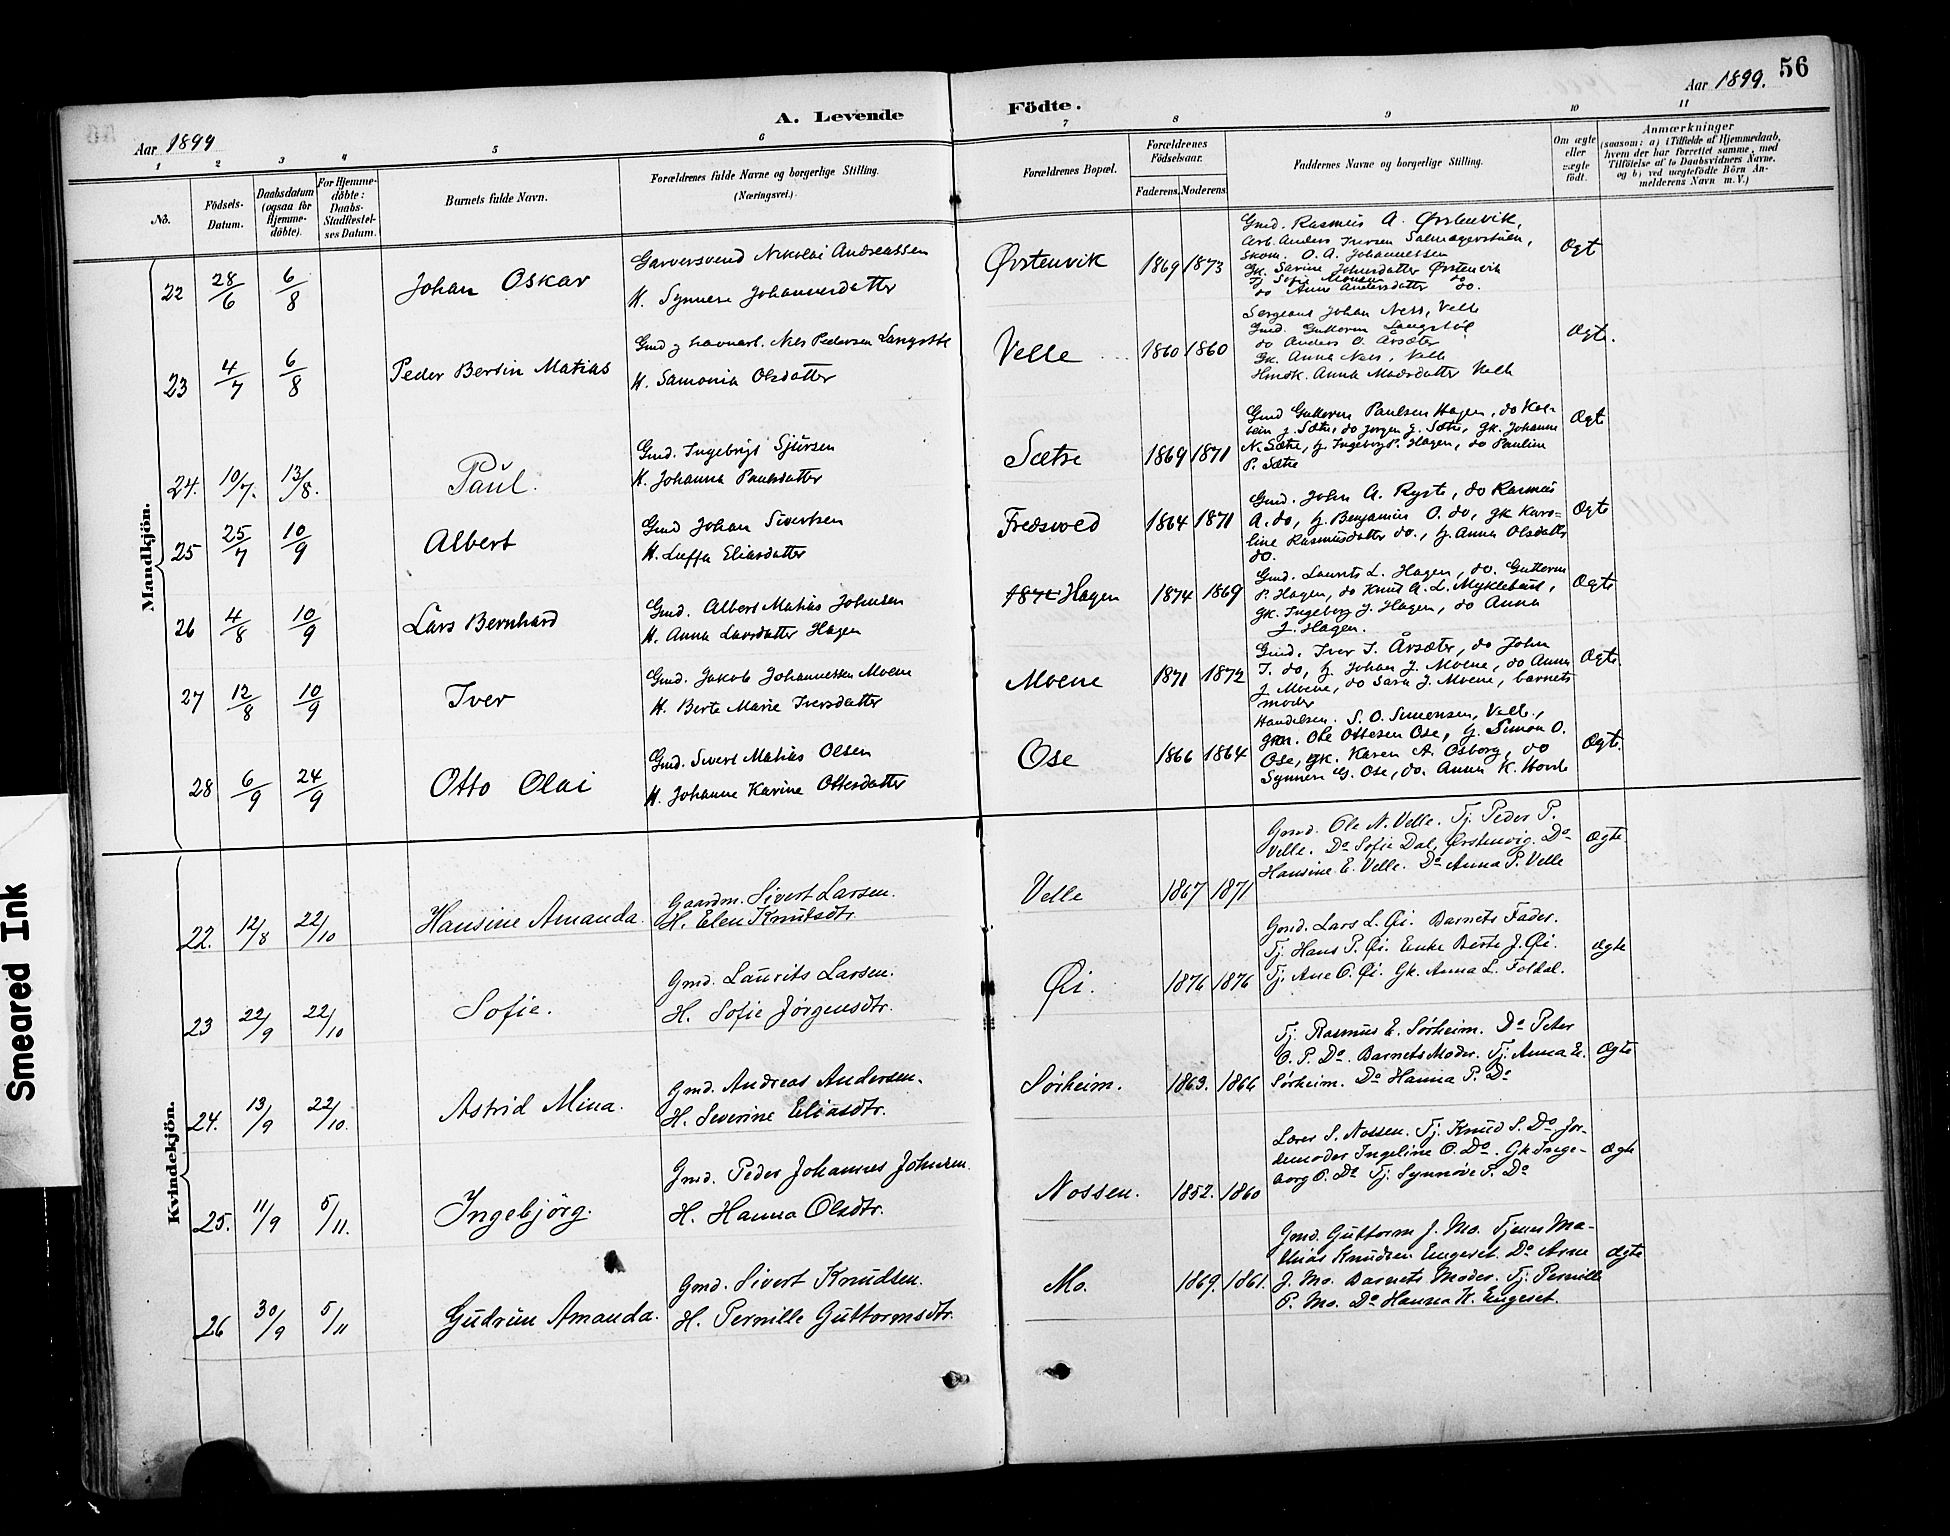 56
Aar 1899
A. Levende
Födte.
Aar 1899.
1 2 3 4 5 6 7 8 9 10 11
No.
Födsels-
Datum.
Daabsdatum
(ogsaa for
Hjemme-
döbte).
For Hjemme-
döbte:
Daabs-
Stadfestel-
ses Datum.
Barnets fulde Navn.
Forældrenes fulde Navne og borgerlige Stilling.
(Næringsvei).
Forældrenes Bopæl.
Forældrenes
Födselsaar.
Faderens. Moderens.
Faddernes Navne og borgerlige Stilling.
Om ægte
eller
uægte
födt.
Anmærkninger
(saasom: a) i Tilfælde af Hjemmedaab,
hvem der har forrettet samme, med
Tilföielse af to Daabsvidners Navne,
og b) ved uægtefödte Börn An-
melderens Navn m. V.)
Mandkjön.
22 28/6 6/8 Johan Oskar
Garversvend Nikolai Andreassen
H. Synnere Johannesdatter
Ørstenvik 1869 1873
Gmd. Rasmus A. Ørstenvik,
Arb. Anders Iversen Salmagerstuen,
Skom. O. A. Johannessen
Gk. Sarine Johnsdatter Ørstenvik
Tj. Sofie Monsen do
do Anne Andersdatter do.
Ægt
23 4/7 6/8 Peder Bersin Matias
Gmd g havnarb. Nils Pedersen Langstøl
H. Samonia Olsdatter
Velle 1860 1860
Sergeant Johan Ness, Velle
Gmd. Guttorm Langstøl
do Anders O. Årsæter
Gk. Anna Ness, Velle
Hmdk. Anna Madsdatter Velle
Ægte.
24. 10/7. 13/8. Paul.
Gmd. Ingebrigt Sjursen
H. Johanna Paulsdatter
Sætre 1869 1871
Gmd Guttorm Paulsen Hagen, do Kol-
bein J. Sætre, do Jørgen J. Sætre, Gk. Johanne
N. Sætre, Tj. Ingeborg P. Hagen, do Pauline
P. Sætre
Ægt
25 25/7 10/9 Albert
Gmd Johan Sivertsen
H. Luffa Eliasdatter
Fredsvoed 1864 1871
Gmd. John A. Ryste, do Rasmus
A. do, Tj. Benjamin O. do, gk Karo-
line Rasmusdatter do., Tj. Anna Olsdatter
do.
Ægte
26 4/8 10/9 Lars Bernhard
Gmd. Albert Matias Johnsen
H. Anna Larsdatter Hagen
1874 Hagen 1874 1869
Gmd. Laurits L. Hagen, do. Guttorm
P. Hagen, do Knut A. L. Myklebust,
Gk. Ingeborg J. Hagen, do Anna
J. Hagen.
Ægte
27 12/8 10/9 Iver
Gmd. Jakob Johannessen Moene
H. Berte Marie Iversdatter
Moene 1871 1872
Gmd. Iver I. Årsæter, do John
I. do, Tj. Johan J. Moene, do Anna
J. Moene, do Sara J. Moene, barnets
moder
Ægte.
28 6/9 24/9 Otto Olai
Gmd. Sivert Matias Olsen
H. Johanne Karine Ottesdatter
Ose 1866 1864
Handelsm. S. O. Simensen, Velle,
gm. Ole Ottesen Ose, Tj. Simon O.
Ose, gk. Karen A. Osborg, do
Synnere G. Ose, do. Anna K. Hovde
Ægte.
Kvindekjön.
22. 12/8 22/10 Hansine Amanda.
Gaardm. Sivert Larsen.
H. Elen Knutsdtr.
Velle 1867 1871
Gmd. Ole N. Velle. Tj. Peder P.
Velle. Do Sofie Dal, Ørstenvig. Do
Hansine E. Velle. Do Anna P. Velle
Ægte
23 22/9 22/10 Sofie.
Gmd. Laurits Larsen.
H. Sofie Jørgensdtr.
Øi. 1876 1876
Gmd. Lars L. Øi. Barnets Fader.
Tj. Hans P. Øi. Enke Berte J. Øi.
Tj. Ane O. Øi. Gk. Anna L. Foldal.
Ægte
24. 13/9 22/10. Astrid Mina.
Gmd. Andreas Andersen.
H. Severine Eliasdtr.
Sørheim. 1863. 1866
Tj. Rasmus E. Sørheim. Do Peter
O. P. Do. Barnets Moder. Tj. Anna E.
Sørheim. Do Hanna P. Do
Ægte
25. 11/9 5/11. Ingebjörg.
Gmd. Peder Johannes Johnsen
H. Hanna Olsdtr.
Nossen. 1852. 1860
Lærer S. Nossen. Tj. Knud S. Do. Jor-
demoder Ingeline O. Do. Gk. Inge-
borg P. Do Tj. Synnöve P. Do
Ægte
26 30/9 5/11 Gudrun Amanda.
Gmd. Sivert Knudsen.
H. Pernille Guttormsdtr.
Mo. 1869. 1861.
Gmd. Guttorm J. Mo. Tjener Ma-
thias Knudsen Engeset. Do Arne
J. Mo. Barnets Moder. Tj. Pernille
P. Mo. Do Hanna K. Engeset.
Ægte
Smeared Ink